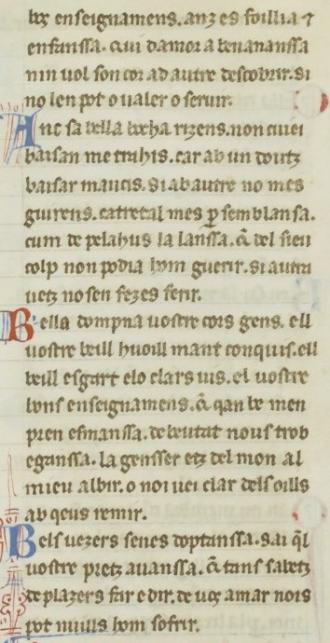 bos enseignamens. anz es foillia ⁊
enfanssa. q̇ui damor a benananssa
nin uol son cor ad autre descobrir. si
no len pot o ualer o seruir.
Anc sa bella bocha rizens. non cuiei
baisan me trahis. car ab un doutz
baisar maucis. si ab autre no mes
guirens. catretal mes ꝑ semblansa.
cum de pelahus la lanssa. q̃ del sieu
colp non podia hom guerir. si autra
uetz no sen fezes ferir.
Bella dompna uostre cors gens. ell
uostre beill huoill mant conquis. ell
beill esgart elo clars uis. el uostre
bons enseignamens. q̃ qan be men
pren esmanssa. de beutat nous trob
eganssa. la gensser etz del mon al
mieu albir. o noi uei clar dels oills
ab qeus remir.
Bels uezers senes doptanssa. sai q̃l
uostre pretz auanssa. q̃ tans sabetz
de plazers far e dir. de uos amar nois
pot nuills hom sofrir.